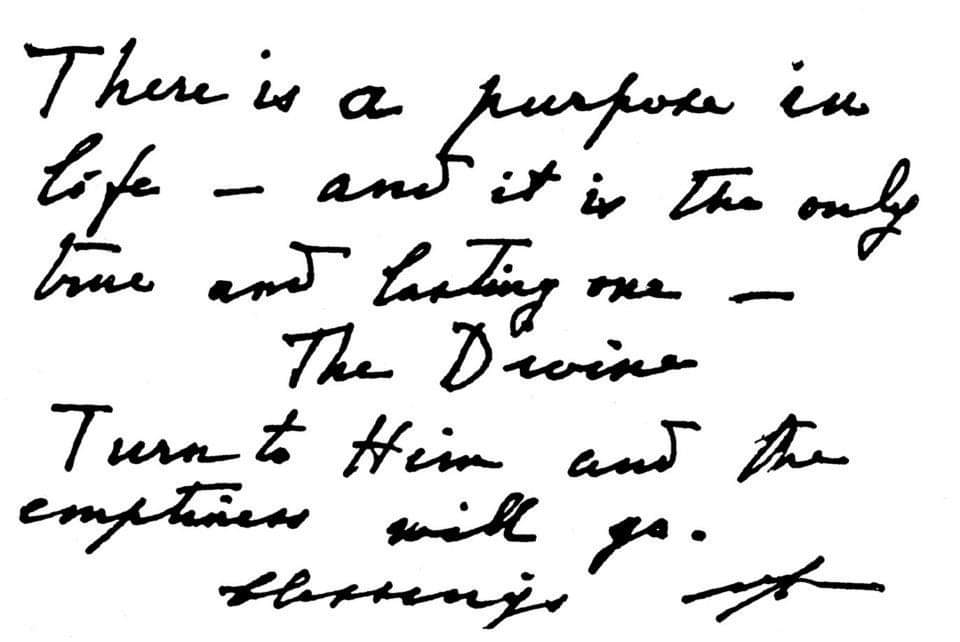 There is a purpose in
life — and it is the only
true and lasting one —
The Divine
Turn to Him and the
emptiness will go.
blessings